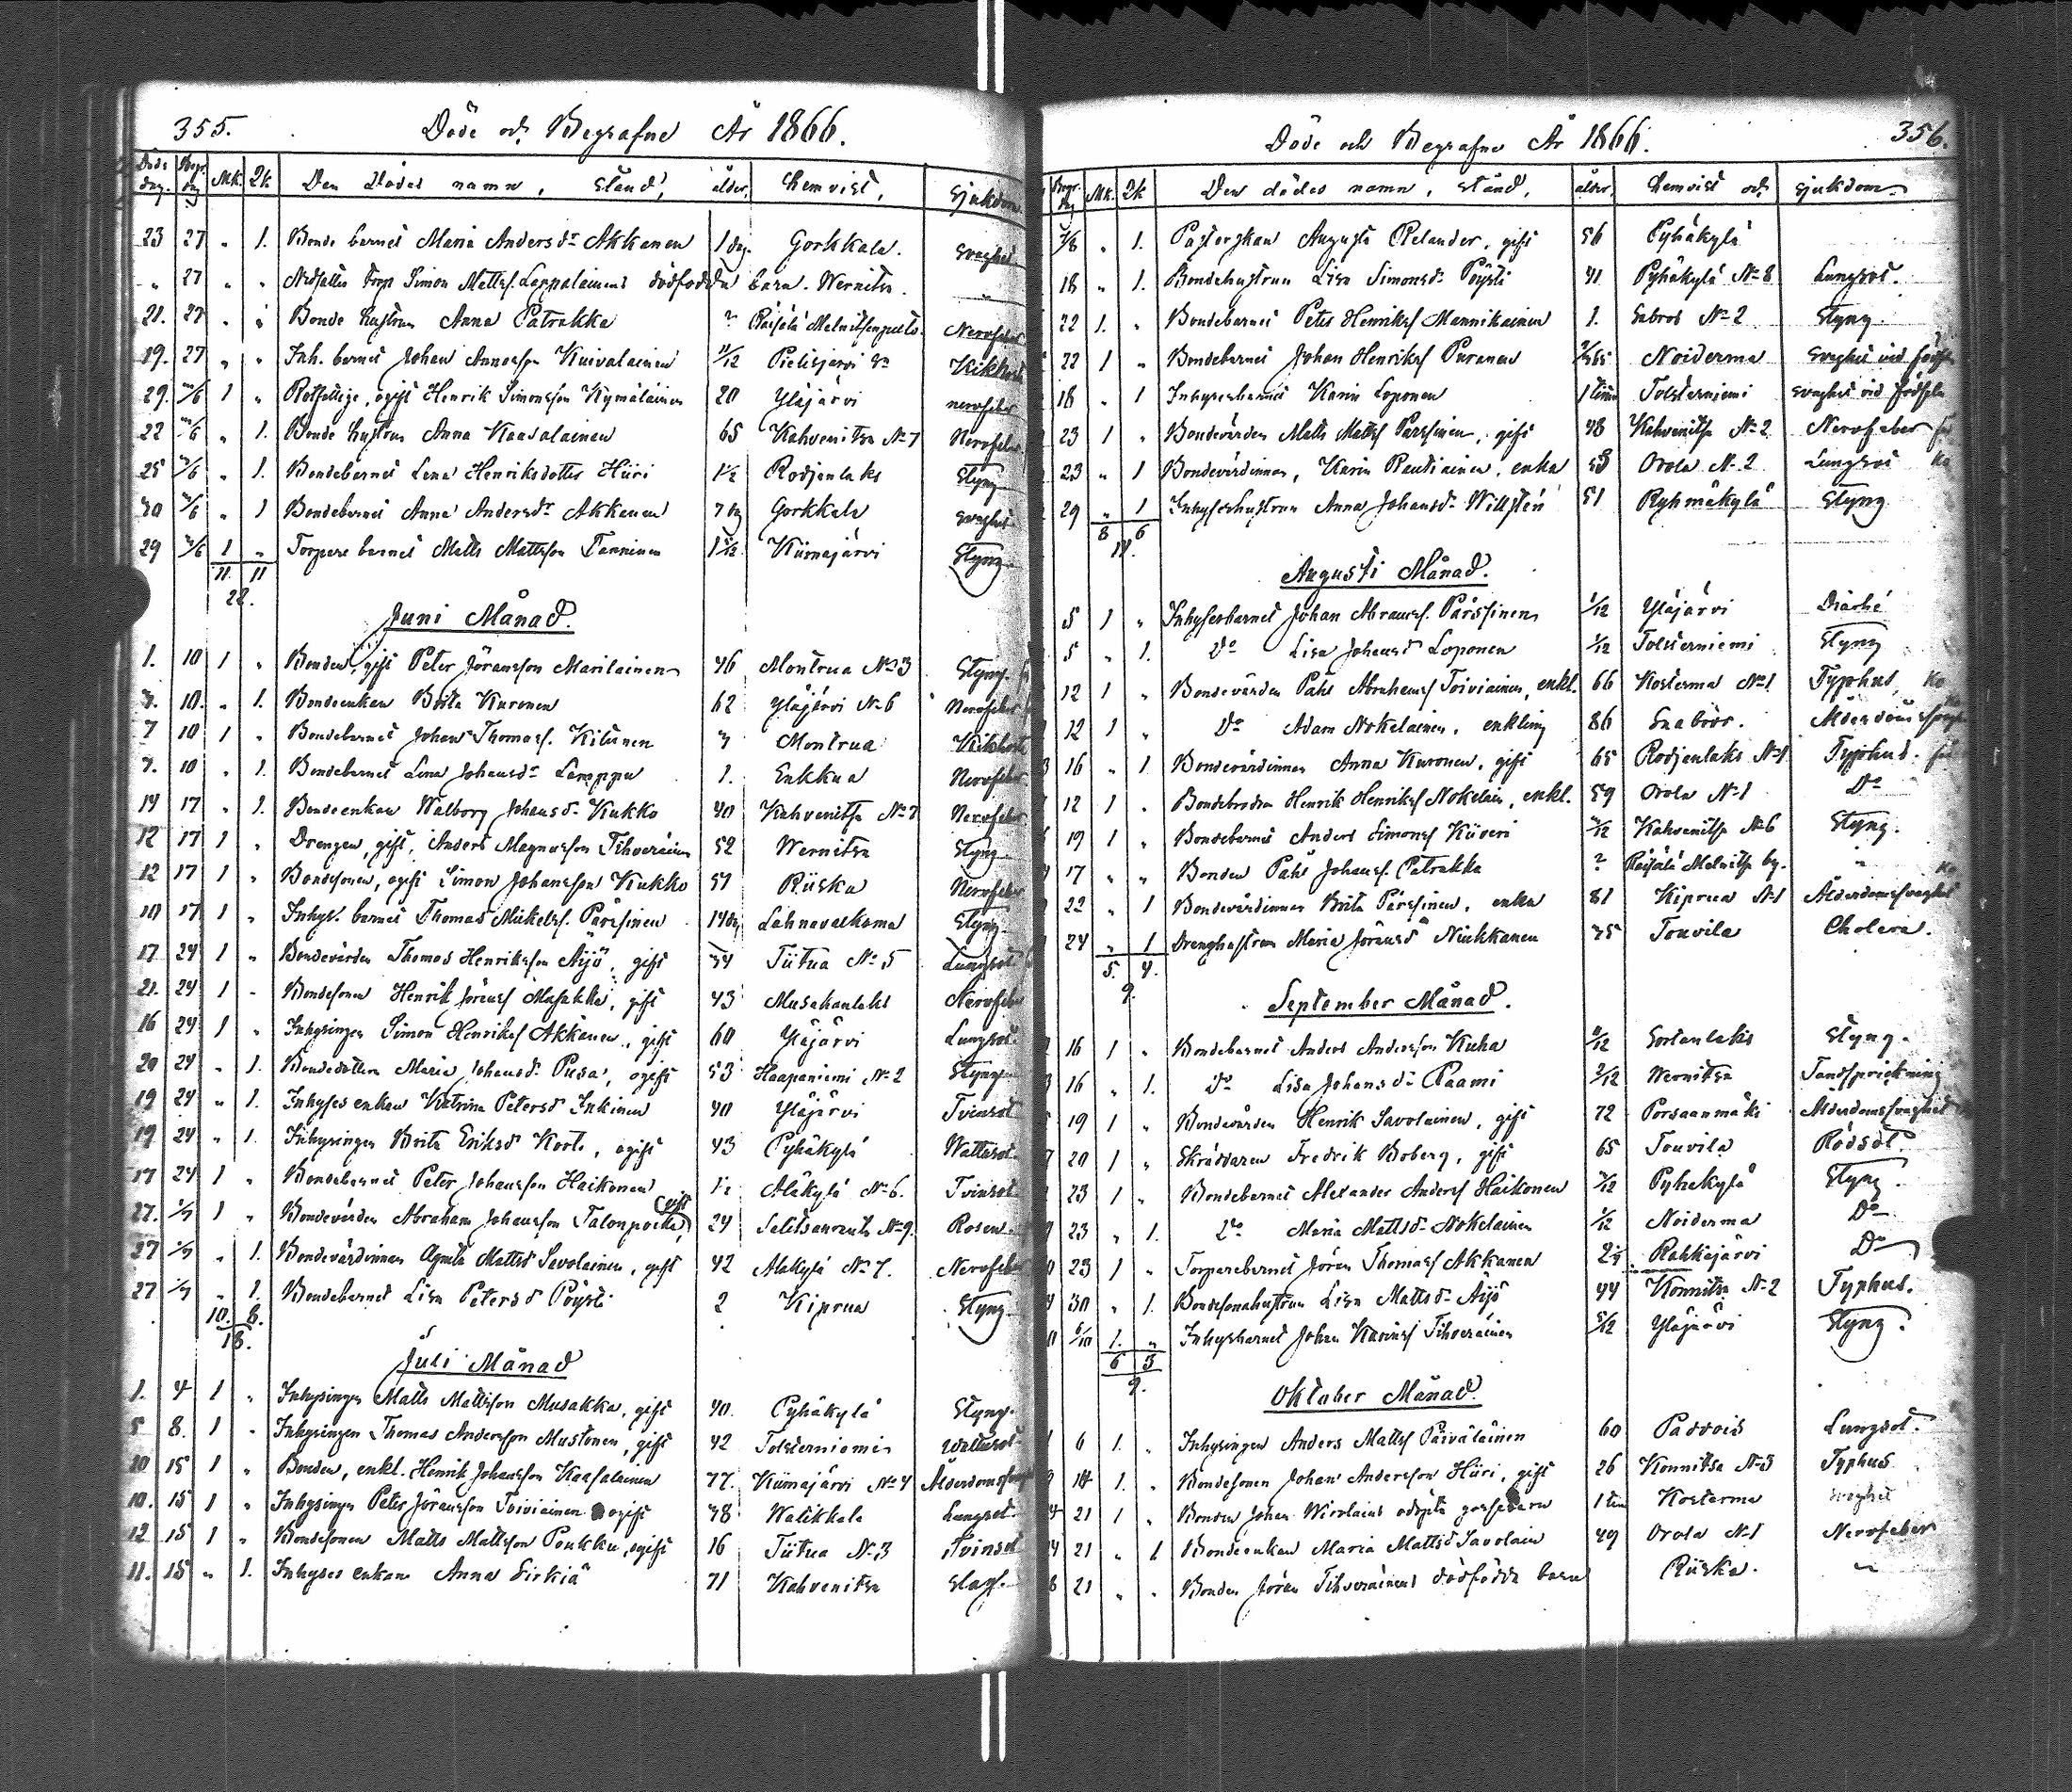 355. Döde och Begrafne År 1866.
Döde dag. Begr. dag Mk. Qk Den Dödes namn, stånd, ålder, hemvist, sjukdom
23 27 " 1. Bonde barnet Maria Andersdr Akkanen 1 dag. Gorkkala. svaghet
" 27 " " Torp Simon Mattss. Lappalainens dödfödda barn. Wernitsa. "
21. 27 " " Bonde hustrun Anna Patrakka ? Räisälä Nervfeber
19. 27 " " Inh. barnet Johan Annasson Kuivalainen 11/12 Pielisjärvi Kikhosta
29. 1 " ogift Henrik Simonsson Kymäläinen 20 Yläjärvi nervfeber
22 " 1. Bonde hustrun Anna Kaasalainen 65 Kahvenitsa No 7 Nervfeber
25 " 1. Bondebarnet Lena Henriksdotter Hiiri 1½ Rodjenlaks Styng
30 " 1 Bondebarnet Anna Andersdr Akkanen 7 dag Gorkkala svaghet
29 1 " Torpare barnet Matts Mattsson Tanninen Kiimajärvi Styng
11 11
22.
Juni Månad.
1. 10 1 " Bonden gift Peter Jöransson Marilainen 46 Montrua No 3 Styng.
7. 10. " 1. Bondeenkan Brita Kuronen 62 Yläjärvi No 6 Nervfeber
7 10 1 " Bondebarnet Johan Thomass. Kilunen 7 Montrua Kikhosta
7. 10 " 1. Bondebarnet Lena Johansdr Lamppu 1. Enkkua Nervfeber
14 17 " 1. Bondeenkan Walborg Johansd. Kukko 40 Kahvenitsa No 7 Nervfeber
12 17 1 " Drengen, gift, Anders Magnusson Tihveräinen 52 Wernitsa Styng
12 17 1 " Bondesonen, ogift Simon Johansson Kukko 51 Riiska Nervfeber
10 17 1 " Inhys. barnet Thomas Mickelss. Pärssinen 14 dag Lahnavalkama Styng
17 24 1 " Bondevärden Thomas Henriksson Äijö, gift 34 Tiitua No 5 Lungsot
21. 24 1 " Bondesonen Henrik Jöranss Musakka, gift 43 Musakanlaks Nervfeber
16 24 1 " Inhysingen Simon Henrikss Akkanen, gift 60 Yläjärvi Lungsot
20 24 " 1. Bondedottren Maria Johansd. Pusa, ogift 53 Haapaniemi No 2 Styng
19 24 " 1. Inhyses enkan Katrina Petersd Inkinen 40 Yläjärvi Tvinsot
19 24 " 1. Inhysingen Brita Eriksd Korte, ogift 43 Pyhäkylä Wattusot
17 24 1 " Bondebarnet Peter Johansson Haikonen 1½ Aläkylä No 6. Tvinsot
27. 1/7 1 " Bondevärden Abraham Johansson Talonpoika, gift 24 No 9. Rosen
27 1/7 " 1. Bondevärdinnan Agneta Mattsd Savolainen, gift 42 Alakylä No 7. Nervfeber
27 1/7 " 1. Bondebarnet Lisa Petersd Pöysti 2 Kiprua Styng
10. 8.
18.
Juli Månad
1. 4 1 " Inhysingen Matts Mattsson Musakka, gift 40. Pyhäkylä Styng.
5 8. 1 " Inhysingen Thomas Andersson Mustonen, gift 42 Tolsterniemi wattusot
10 15 1 " Bonden, enkl. Henrik Johansson Kaasalainen 77. Kiimajärvi No 4 Ålderdomssvag
10. 15 1 " Inhysingen Peter Jöransson Toiviainen ogift 38 Walikkala Lungsot.
12 15 1 " Bondesonen Matts Mattsson Poukku, ogift 16 Tiitua No 3 Tvinsot
11. 15 " 1. Inhyses enkan Anna Sirkiä 71 Kahvenitsa Slag.
Döde och Begrafne År 1866. 356.
Begr. dag Mk. Qk Den dödes namn, stånd, ålder, hemvist och sjukdom
" 1. Pastorskan Augusta Relander, gift 56 Pyhäkylä
18 " 1. Bondehustrun Lisa Simonsd. Pöysti 41 Pyhäkylä No 8 Lungsot.
22 1. " Bondebarnet Peter Henrikss Mannikainen 1. Snbros No 2 Styng.
22 1 " Bondebarnet Johan Henrikss Puranen Noiderma Svaghet vid födseln
18 " 1 Inhysesbarnet Karin Loponen 1 timm Tolsterniemi Svaghet vid födseln
23 1 " Bondevärden Matts Mattss Pärssinen, gift 48 Kahvenitsa No 2 Nervfeber
23 " 1 Bondevärdinnan, Karin Rautiainen, enka 58 Orola No 2 Lungsot
29 " 1 Inhyseshustrun Anna Johansd. Willstén 51 Ryhmäkylä Styng
8 6
14.
Augusti Månad.
5 1 " Inhysesbarnet Johan Abramss. Pärssinen 1/12 Yläjärvi Diarhé
5 " 1. Do Lisa Johansd Loponen 1/12 Tolsterniemi Styng
12 1 " Bondevärden Påhl Abrahamss Toiviainen, enkl. 66 Kosterma No 1 Typhus
12 1 " Do Adam Nokelainen, enkling 86 Ålderdomssvag
16 " 1 Bondevärdinnan Anna Kuronen, gift 65 Rodjenlaks No 1 Typhus.
12 1 " Bondebrodren Henrik Henrikss Nokelain, enkl. 59 Orola No 1 Do
19 1 " Bondebarnet Anders Simonss Kiiveri Kahvenitsa No 6 Styng.
17 " " Bonden Påhl Johanss. Patrakka ? Räisälä by. "
22 " 1 Bondevärdinnan Brita Pärssinen, enka 81 Kiprua No 1 Ålderdomssvaghet
24 " 1 Drenghustrun Maria Jöransd Niukkanen 35 Touvila Cholera.
5. 4.
9.
September Månad.
16 1 " Bondebarnet Anders Andersson Kuha Sortanlaks Styng.
16 " 1. Do Lisa Johansdr Paami 2/12 Wernitsa Tandsprickning
19 1 " Bondevärden Henrik Savolainen, gift 72 Porsaanmäki Ålderdomssvaghet
20 1 " Skräddaren Fredrik Boberg, gift 65 Touvila Rödsot.
23 1 " Bondebarnet Alexander Anderss Haikonen Pyhäkylä Styng.
23 " 1. Do Maria Mattsd. Nokelainen 1/12 Noiderma Do
23 1 " Torparebarnet Jöran Thomass Akkanen Rahkajärvi Do
30 " 1. Bondesonahustrun Lisa Mattsd. Äijö 44 Konnitsa No 2 Typhus.
6/10 1. " Inhysbarnet Johan Karinss Tihveräinen 5/12 Yläjärvi Styng.
6 3
9.
Oktober Månad.
6 1. " Inhysingen Anders Mattss Päiväläinen 60 Parvois Lungsot.
14 1. " Bondesonen Johan Andersson Hiiri, gift 26 Konnitsa No 3 Typhus
21 1 " Bonden Johan odöpta gossebarn 1 tim Kosterma svaghet
21 " 1 Bondeenkan Maria Mattsd Savolain 49 Orola No 1 Nervfeber
21 " " Bonden Jöran Tihveräinens dödfödda barn Riiska. "